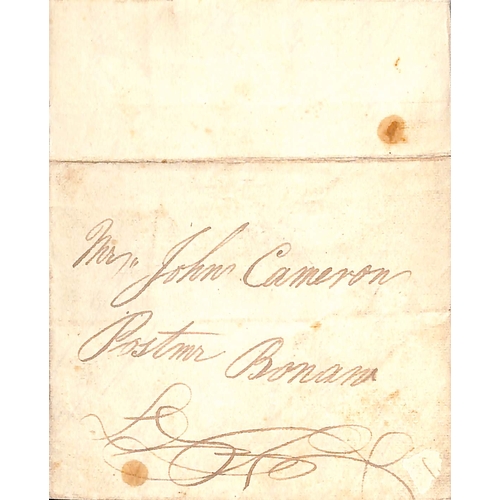 Mr John Cameron
Postmr Bonaw